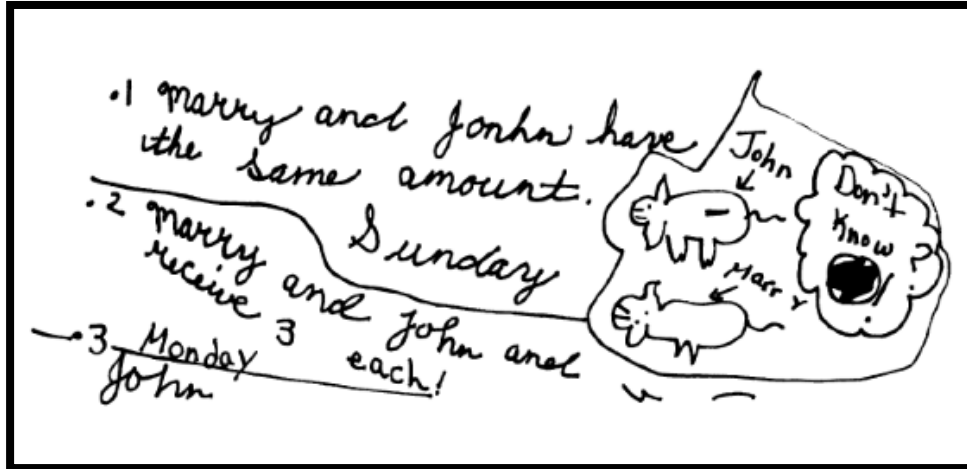 .1 Marry and Jonhn have
the same amount.
Sunday
.2 Marry and John and
receive 3 each!
.3 Monday
John
John
Marry
Don't
Know
?!